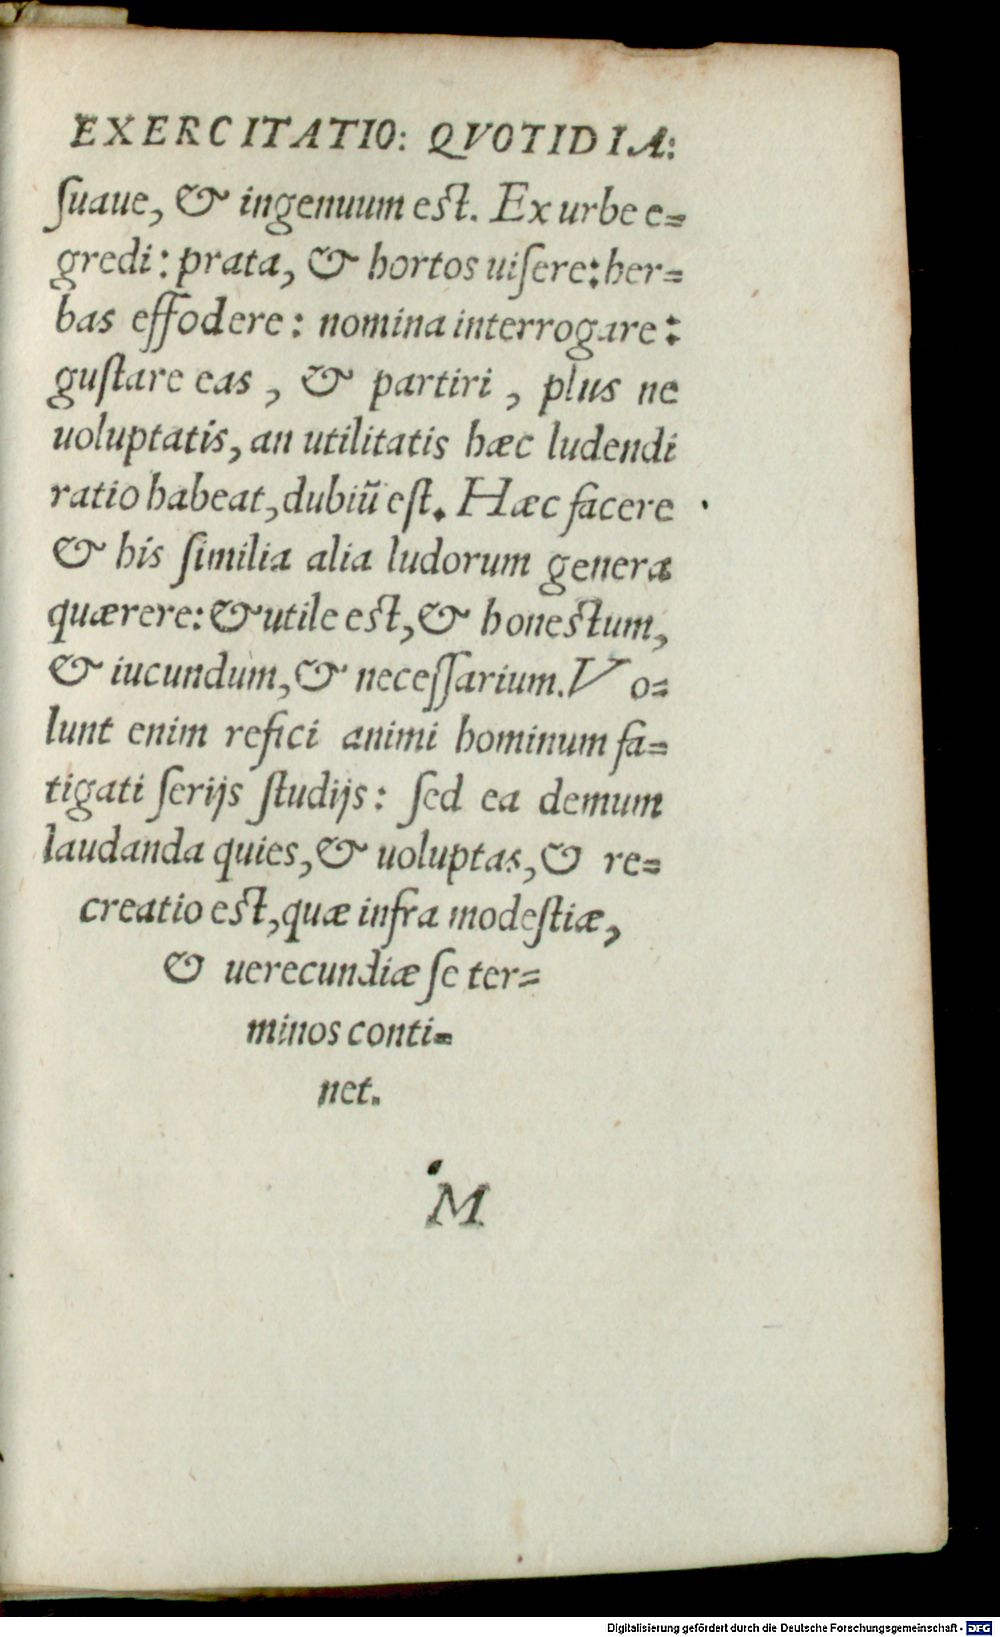 EXERCITATIO: QVOTIDIA:
ſuaue, & ingenuum est. Ex urbe e=
gredi: prata, & hortos uiſere: her=
bas effodere: nomina interrogare:
guſtare eas, & partiri, plus ne
uoluptatis, an utilitatis hæc ludendi
ratio habeat, dubiū eſt. Hæc facere
& his ſimilia alia ludorum genera
quærere: & utile est, & honestum,
& iucundum, & neceſſarium. Vo=
lunt enim refici animi hominum fa=
tigati ſerijs ſtudijs: ſed ea demum
laudanda quies, & uoluptas, & re=
creatio est, quæ infra modeſtiæ,
& uerecundiæ ſe ter=
minos conti=
net.
M
Digitalisierung gefördert durch die Deutsche Forschungsgemeinschaft - DFG